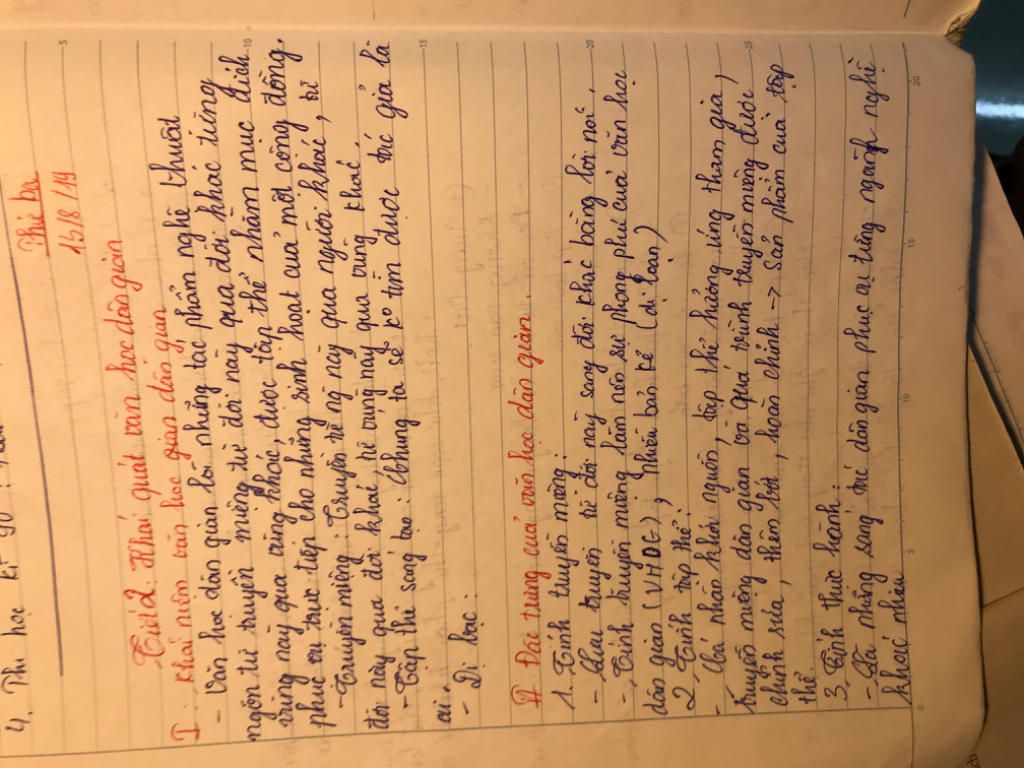 4. Thi học kì
Thứ ba
15/8/19
Tiết 2. Khái quát văn học dân gian
I: Khái niệm văn học gian dân gian
- Văn học dân gian là những tác phẩm nghệ thuật
ngôn từ truyền miệng từ đời này qua đời khác từng
vùng này qua vùng khác, được tập thể nhằm mục đích
phục vụ trực tiếp cho những sinh hoạt của một cộng đồng.
- Truyền miệng: Truyền từ ng này qua người khác, từ
đời này qua đời khác, từ vùng này qua vùng khác.
- Tập thể sáng tạo: Chúng ta sẽ ko tìm được tác giả là
ai.
- Dị bọc:
II Đặc trưng của văn học dân gian.
1. Tính truyền miệng:
- Lưu truyền từ đời này sang đời khác bằng lời nói.
- Tính truyền miệng làm nên sự phong phú của văn học
dân gian (VHDG), nhiều bản kể (dị bản)
2. Tính tập thể:
- Cá nhân khởi nguồn, tập thể hưởng ứng tham gia,
truyền miệng dân gian và quá trình truyền miệng được
chỉnh sửa, thêm bớt, hoàn chỉnh -> Sản phẩm của tập
thể.
3. Tính thực hành:
- Là những sáng tác dân gian phục vụ từng ngành nghề
khác nhau